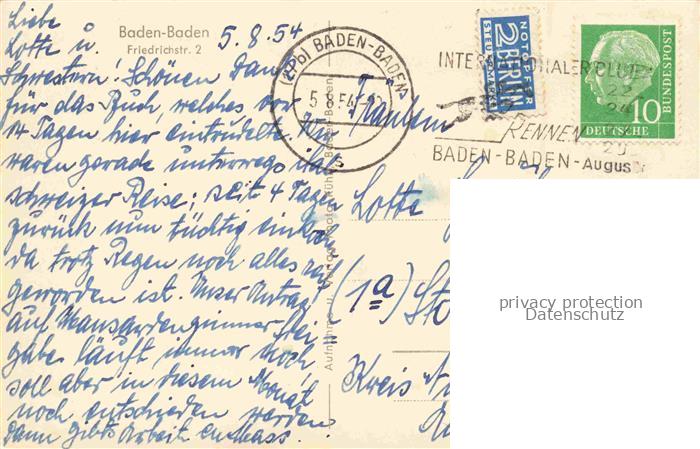 Baden-Baden
Friedrichstr. 2
5.8.54
Liebe
Lotte u.
Schwestern! Schönen Dank
für das Buch, welches vor
14 Tagen hier eintrudelte. Wir
waren gerade unterwegs
schweizer Reise; seit 4 Tagen
zurück nun tüchtig
da trotz Regen noch alles reif
geworden ist. Unser Antrag
auf Mansardenzimmer frei
gabe läuft immer noch,
soll aber in diesem Monat
noch entschieden werden
Dann gibts Arbeit en mass.
(22b) BADEN-BADEN
5.8.54
INTERNATIONALER CLUB
22
24
29
RENNEN
BADEN-BADEN-August
NOTOPFER
2 BERLIN
STEUERMARKE
DEUTSCHE
BUNDESPOST
10
Aufnahme u. Verlag
Baden-Baden
Fräulein
Lotte
(1a)
Kreis
privacy protection
Datenschutz